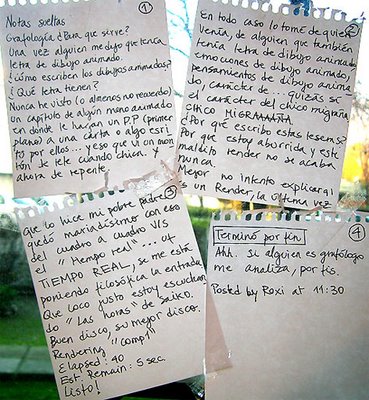 1
Notas sueltas
Grafología ¿Para que sirve?
Una vez alguien me dijo que tenía
letra de dibujo animado.
¿Cómo escriben los dibujos animados?
¿Qué letra tienen?
Nunca he visto (o almenos no recuerdo)
un capítulo de algún mono animado
en donde le hagan un P.P (primer
plano) a una carta o algo escri
to por ellos... yeso que vi un mon
tón de tele cuando chica y
ahora de repente.
2
En todo caso lo tomé de quien
venía, de alguien que también
tenía letra de dibujo animado,
emociones de dibujo animado,
pensamientos de dibujo anima
do, carácter de... quizás si
el carácter del chico migraña
CHICO MIGRAÑAAA
¿Por qué escribo estas lesem
Por que estoy aburrida y este
maldito render no se acaba
nunca.
Mejor no intento explicar q
es un Render, la última vez
3
que lo hice mi pobre padre
quedó mariadísimo con eso
del cuadro a cuadro V/S
el "tiempo real"... uf
TIEMPO REAL, se me está
poniendo filosófica la entrada
Que loco justo estoy escuchan
do "Las horas" de Saiko.
Buen disco, su mejor disco.
Rendering "comp 1"
Elapsed: 40
Est. Remain: 5 sec.
Listo!
4
Terminó por fin
Ahh. si alguien es grafólogo
me analiza, por fis.
Posted by Roxi at 11:30